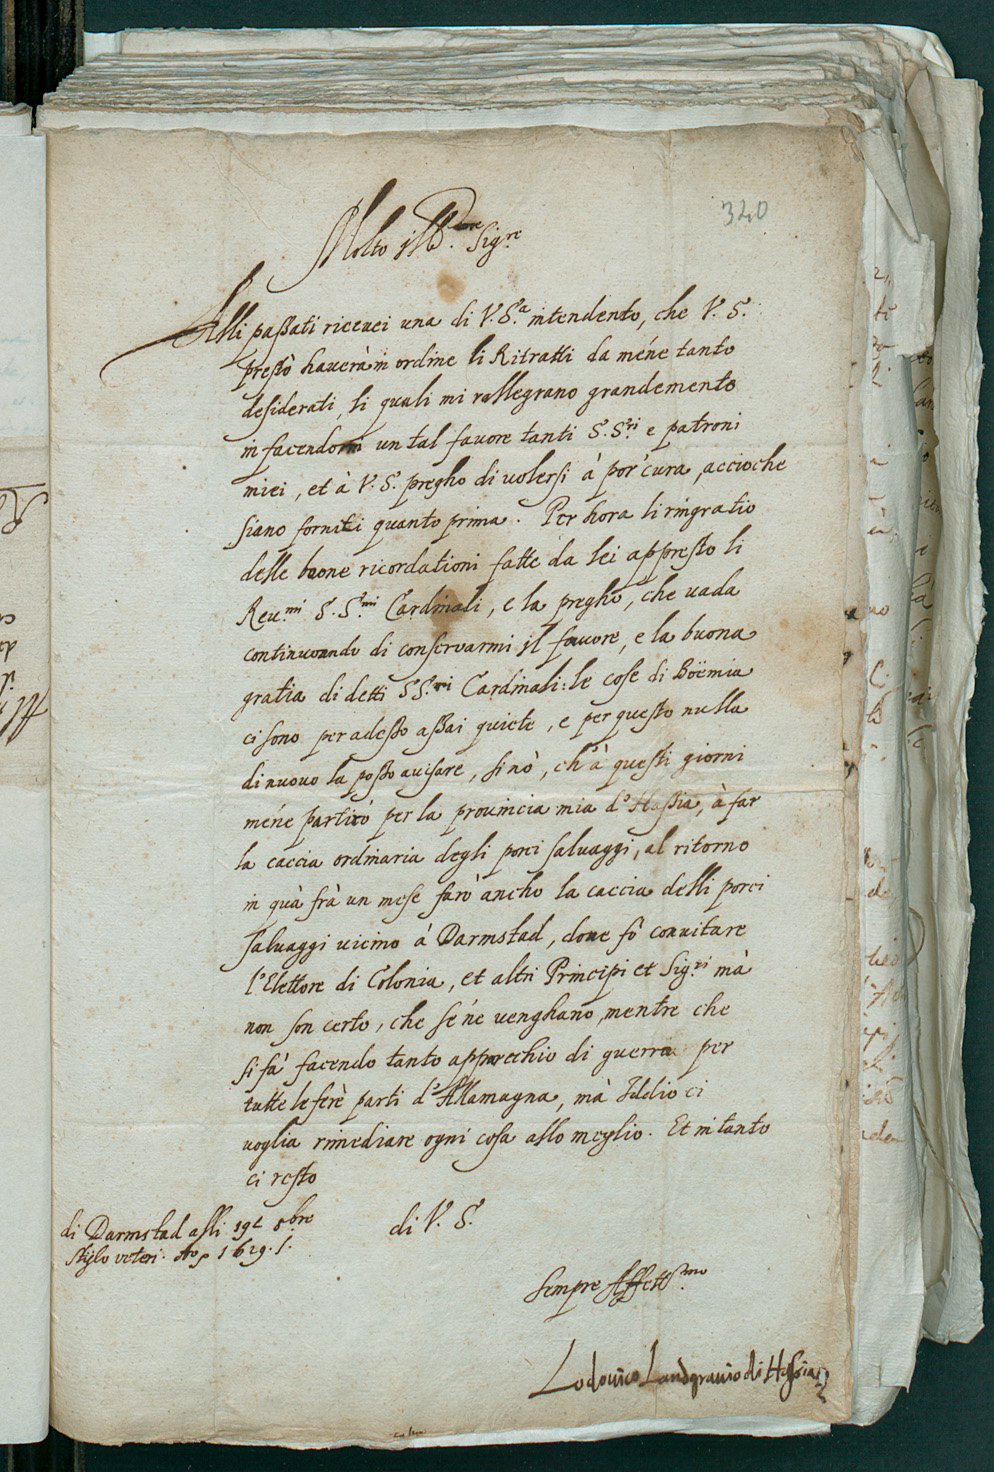 320
Molto Ill.re Sig.re
Alli passati riceuei una di V.S.a intendento, che V. S.
prestò hauerà in ordine li Ritratti da méne tanto
desiderati, li quali mi rallegrano grandemento
in facendomi un tal fauore tanti S.S.ri e patroni
miei, et à V. S. pregho di uolersi à por cura, accioche
siano forniti quanto prima. Per hora li ringratio
delle buone ricordationi fatte da lei appresto li
Reu.mi S.S.mi Cardinali, e la pregho, che uada
continuando di conseruarmi il fauore, e la buona
gratia di detti S.S.ri Cardinali: le cose di Böemia
ci sono per adesso assai quiete, e per questo nulla
di nuouo la posso auisare, sinò, ch'à questi giorni
méne partirò per la prouincia mia d'Hassia, à far
la caccia ordinaria degli porci saluaggi, al ritorno
in quà frà un mese farò ancho la caccia delli porci
saluaggi uicino á Darmstad, doue fò conuitare
l'Elettore di Colonia, et altri Principi et Sig.ri mà
non son certo, che séne uenghano, mentre che
si fà facendo tanto apparecchio di guerra per
tutte le ferè parti d'Allamagna, mà Iddio ci
uoglia rimediare ogni cosa allo meglio. Et intanto
ci resto
di Darmstad alli 19 8bre
Stylo veteri. 1619.
di V. S.
Sempre Affett.mo
Lodouico Landgrauio di Hassia